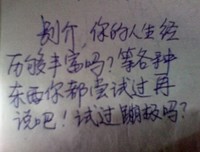 别介，你的人生经
历够丰富吗？等各种
东西你都尝试过再
说吧！试过蹦极吗？